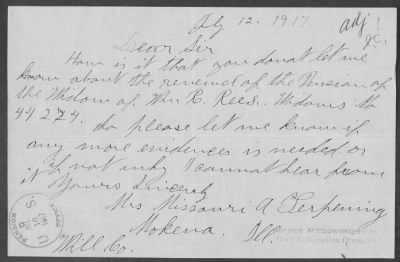 July 12. 1917.
adj
Dear Sir
How is it that you donat let me
know about the renewel of the Pension of
the Widow of Wm R. Rees. Widows No
44274. do please let me know if
any more evidences is needed or
if not why I cannot hear from
it Yours Sincerely
Mrs Missouri A Terpening
Mokena. Ill.
Will Co.